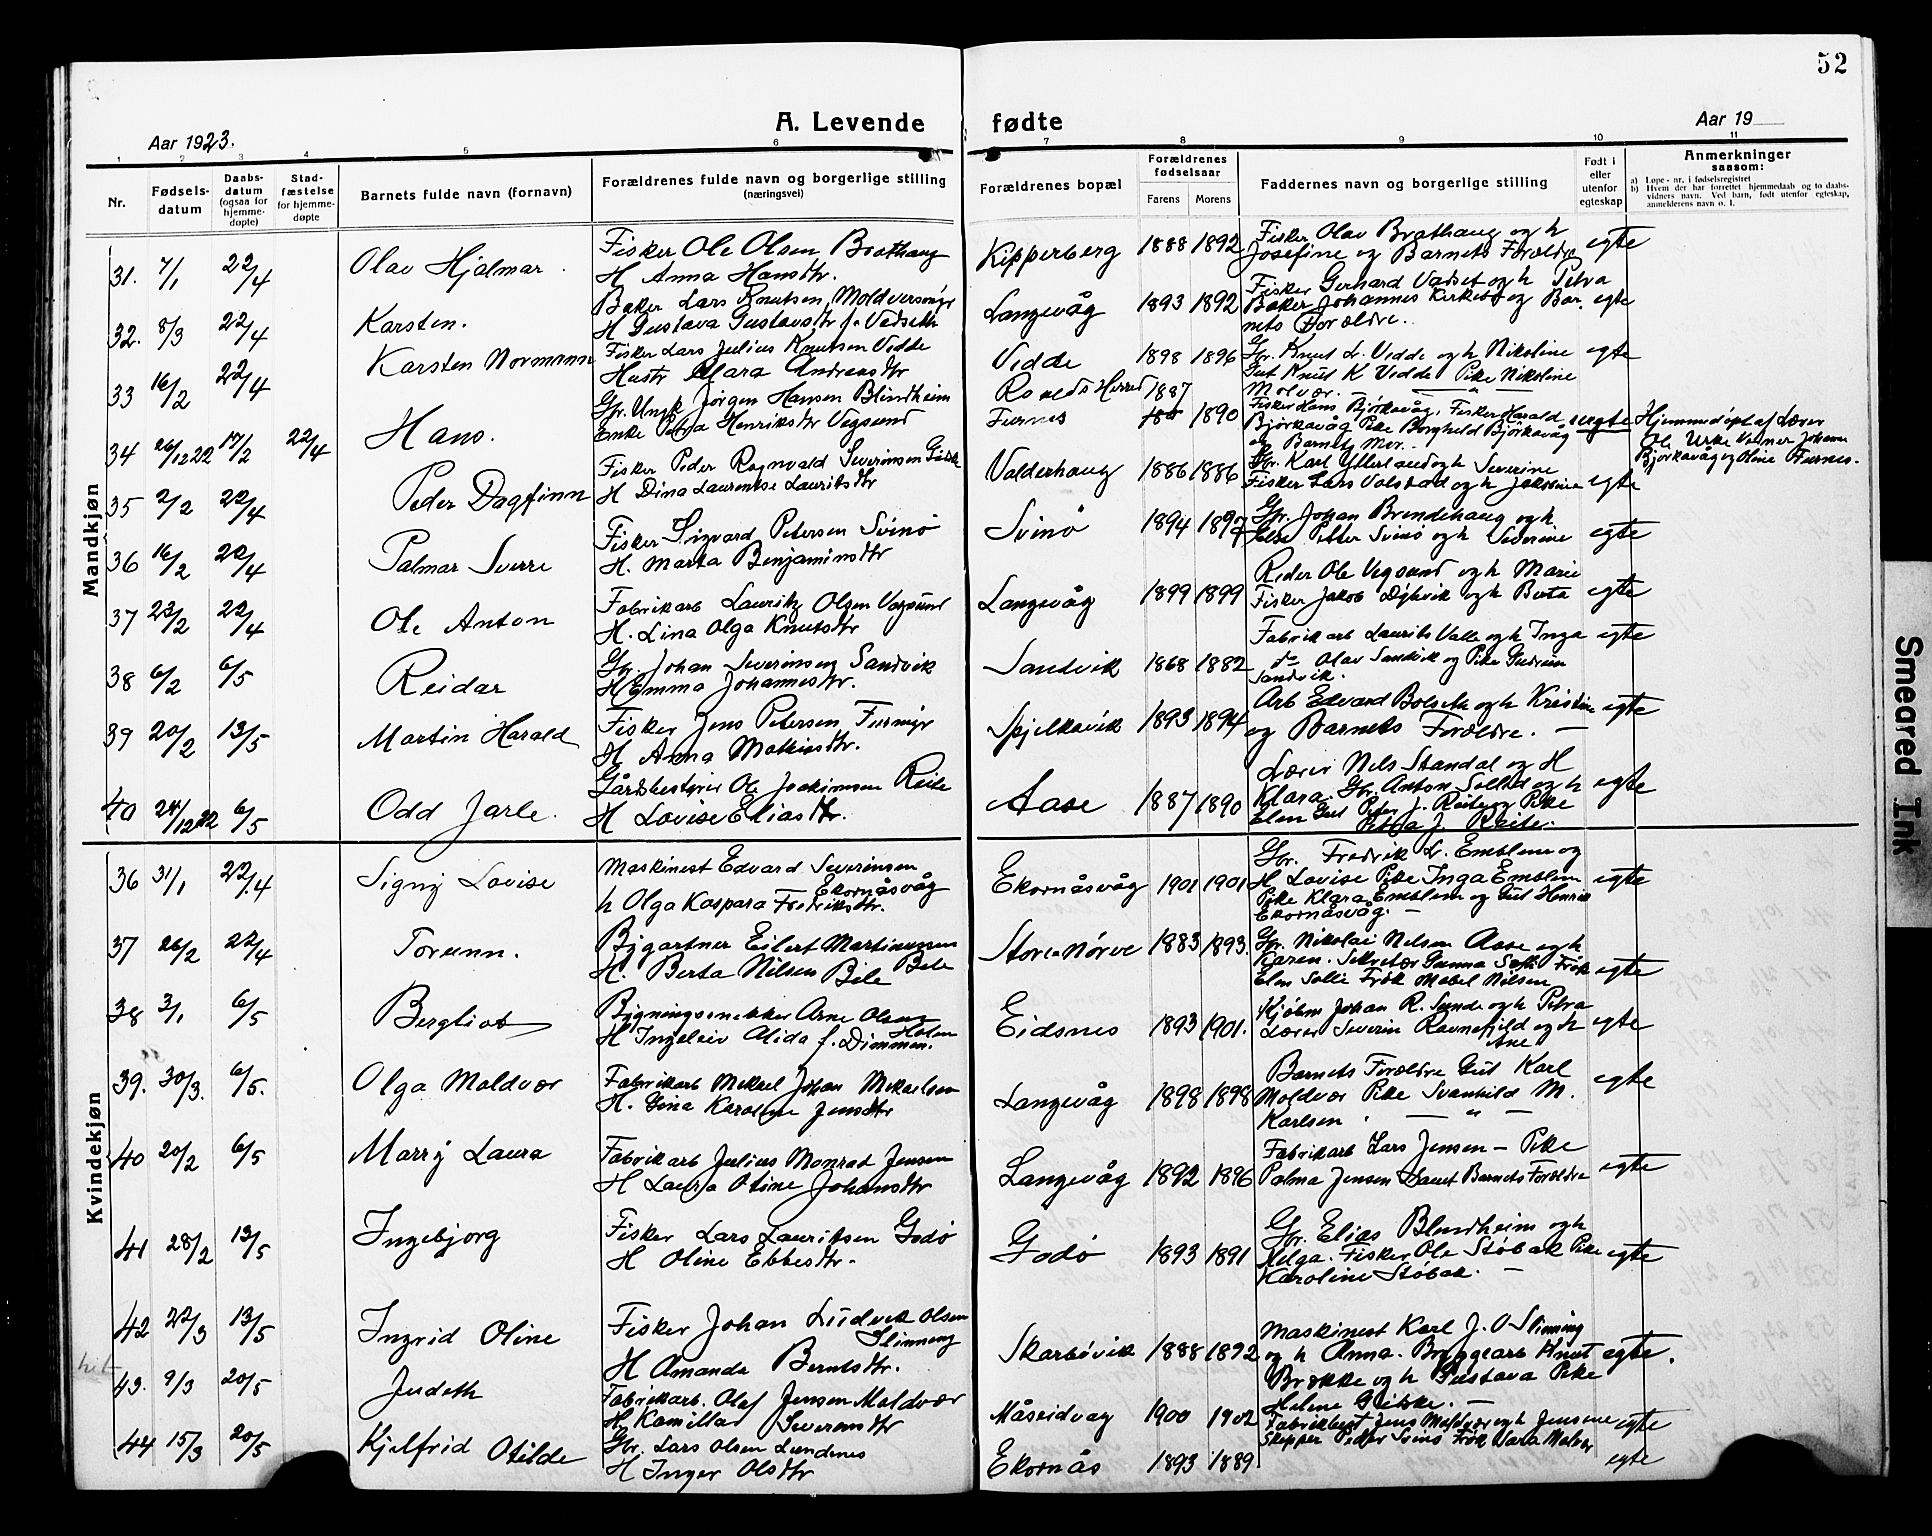 52
Aar 1923.
A. Levende fødte
Aar 19
1 2 3 4 5 6 7 8 9 10 11
Nr.
Fødsels-
datum
Daabs-
datum
(ogsaa for
hjemme-
døpte)
Stad-
fæstelse
for hjemme-
døpte
Barnets fulde navn (fornavn)
Forældrenes fulde navn og borgerlige stilling
(næringsvei)
Forældrenes bopæl
Forældrenes
fødselsaar
Farens Morens
Faddernes navn og borgerlige stilling
Født i
eller
utenfor
egteskap
Anmerkninger
saasom:
a) Løpe-nr. i fødselsregistret
b) Hvem der har forrettet hjemmedaab og to daabs-
vidners navn. Ved barn, født utenfor egteskap,
anmelderens navn o. l.
Mandkjøn
31. 7/1 22/4 Olav Hjalmar
Fisker Ole Olsen Brathaug
H Anna Hansdtr.
Kipperberg 1888 1892
Fisker Olav Brathaug og h
Josefine og Barnets Forældre
egte
32. 8/3 22/4 Karsten.
Baker Lars Knutsen Moldversmyr
H Gustava Gustavsdtr f. Vadseth
Langevåg 1893 1892
Fisker Gerhard Vadset og h Petra
Baker Johannes Kirkebø og Bar
nets Forældre.
egte
33 16/2 22/4 Karsten Normann
Fisker Lars Julius Knutsen Vedde
Hustr Clara Andreasdtr
Vedde 1898 1896
Gbr. Knut L. Vedde og h Nikoline
Gut Knut K Vedde Pike Nikoline
Molvær.
egte
34 26/12 22 17/2 22/4 Hans.
Gbr. Ungk Jørgen Hansen Blindheim
Enke Petra Henriksdtr Vegsund
Roalds Herred 1887
Furnes 1890
Fisker Hans Bjørkavåg, Fisker Harald
Bjørkavåg Pike Borghild Bjørkavåg
og Barnets Mor.
uegte
Hjemmedøpt af Lærer
Ole Urke Vidner Johan
Bjørkavåg og Oline Furnes.
35 2/2 22/4 Peder Dagfinn
Fisker Peder Ragnvald Severinsen Giske
H Dina Laurentse Lauritsdtr
Valderhaug 1886 1886
Gbr. Karl Ytterland og h Severine
Fisker Lars Valstad og h Jakobine
egte
36 16/2 22/4 Palmar Sverre
Fisker Sigvard Petersen Svinø
H. Marta Benjaminsdtr
Svinø 1894 1897
Gbr. Johan Brendehaug og h
Else Petter Svinø og h Severine
egte
37 23/2 22/4 Ole Anton
Fabrikarb Lauritz Olsen Vegsund
H. Lina Olga Knutsdtr
Langevåg 1899 1899
Reder Ole Vegsund og h Marie
Fisker Jakob Djupvik og h Berta
egte
38 6/2 6/5 Reidar
Gbr. Johan Severinsen Sandvik
H Emma Johannesdtr.
Sandvik 1868 1882
Fabrikarb Laurits Valle og h Inga
do Olav Sandvik og Pike Gudrun
Sandvik.
egte
39 20/2 13/5 Martin Harald
Fisker Jens Petersen Furmyr
H Anna Mathiasdtr.
Spjelkavik 1893 1894
Arb Edvard Bolseth og h Kristine
og Barnets Forældre.
egte
40 24/12 22 6/5 Odd Jarle.
Gårdsbestyrer Ole Joakimsen Reite
H Lovise Eliasdtr.
Aase 1887 1890
Lærer Nels Standal og H
Klara. Gbr. Anton Solli og h
Elen Gut Peder J. Reite og Pike
Petra J. Reite.
egte
Kvindekjøn
36 31/1 22/4 Signy Lovise
Maskinest Edvard Severinsen
Ekornåsvåg
h Olga Kaspara Fredriksdtr.
Ekornåsvåg 1901 1901
Gbr. Fredrik L. Emblem og
H Lovise Pike Inga Emblem
Pike Klara Emblem og Gut Henrik
Ekornåsvåg.
egte
37 26/2 22/4 Torunn.
Bygartner Eilert Martinussen
Bele
H. Berta Nilsen Bele
Store Nørve 1883 1893.
Gbr. Nikolai Nelsen Aase og h
Karen. Sekretær Gunna Solli Frøk
Elen Solli Frøk Mabel Nilsen
egte
38 3/1 6/5 Bergliot
Bygningssnekker Arne Olsen
Holen
H Ingeleiv Alida f. Dimmen.
Eidsnes 1893 1901.
Kjøbm Johan R. Sunde og h Petra
Lærer Severin Ravnefjeld og h
Ane
egte
39. 30/3. 6/5. Olga Moldvær
Fabrikarb Mikael Johan Mikaelsen
H. Gina Karoline Jensdtr
Langevåg 1898 1898
Barnets Forældre Gut Karl
Moldvær Pike Svanhild M.
Karlsen
egte
40 20/2 6/5 Marry Laura
Fabrikarb Julius Monrad Jensen
H Laura Otine Johansdtr
Langevåg 1892 1896
Fabrikarb Lars Jensen – Pike
Palma Jensen samt Barnets Forældre
egte
41 28/2 13/5 Ingebjørg
Fisker Lars Lauritsen Godø
H Oline Ebbesdtr.
Godø 1893 1891
Gbr. Elias Blindheim og h
Helga. Fisker Ole Støbak Pike
Karoline Støbak.
egte
42 22/3 13/5 Ingrid Oline
Fisker Johan Ludvik Olsen
Slinning
H Amanda Berntsdtr.
Skarbøvik 1888 1892
Maskinest Karl J. O. Slinning
og h Anna. Bryggearb Knut
Brekke og h Gustava Pike
Helene Giske.
egte.
43. 9/3 20/5 Judeth
Fabrikarb. Olaf Jensen Moldvær
H. Kamilla Severinsdtr
Måseidvag 1900 1902
Fabrikbest Jens Moldvær og h Jensene
Skipper Peder Svinø Frøk Vara Molvær
egte
44 15/3 20/5 Kjelfrid Otilde
Gbr. Lars Olsen Lundenes
H Inger Olsdtr
Ekornås 1893 1889
egte
Smeared Ink